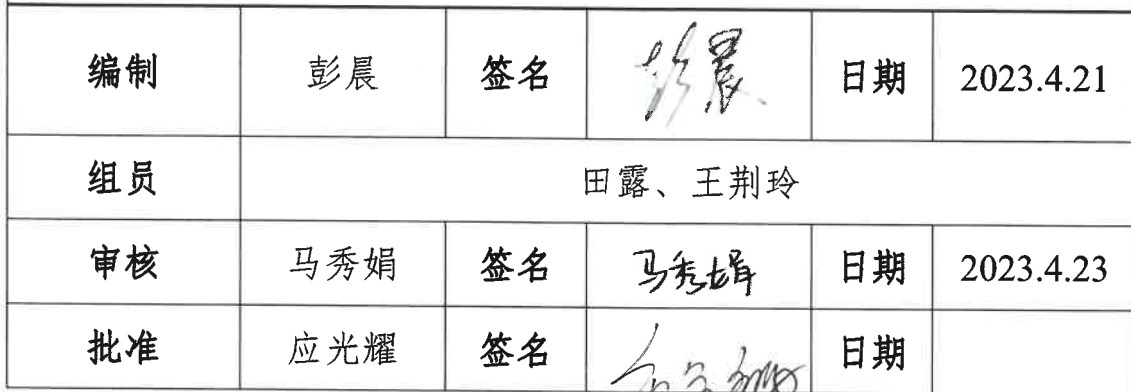 编制 彭晨 签名 彭晨 日期 2023.4.21
组员 田露、王荆玲
审核 马秀娟 签名 马秀娟 日期 2023.4.23
批准 应光耀 签名 日期